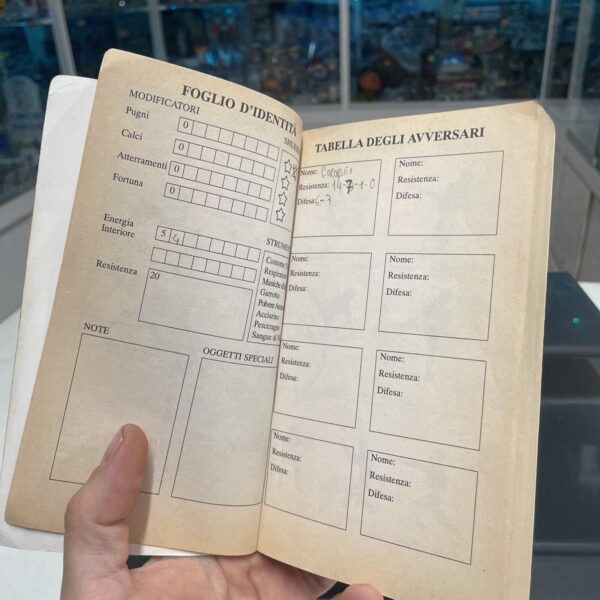 FOGLIO D'IDENTITÀ
MODIFICATORI
Pugni
0
Calci
0
Atterramenti
0
Fortuna
0
Energia
Interiore
5 4
Resistenza
20
STRUMEN
Costume
Garrotta
Acciarino
NOTE
OGGETTI SPECIALI
TABELLA DEGLI AVVERSARI
Nome: GOROBEI
Resistenza: 14-7-1-0
Difesa: 6-7
Nome:
Resistenza:
Difesa:
Nome:
Resistenza:
Difesa:
Nome:
Resistenza:
Difesa:
Nome:
Resistenza:
Difesa:
Nome:
Resistenza:
Difesa:
Nome:
Resistenza:
Difesa:
Nome:
Resistenza:
Difesa: